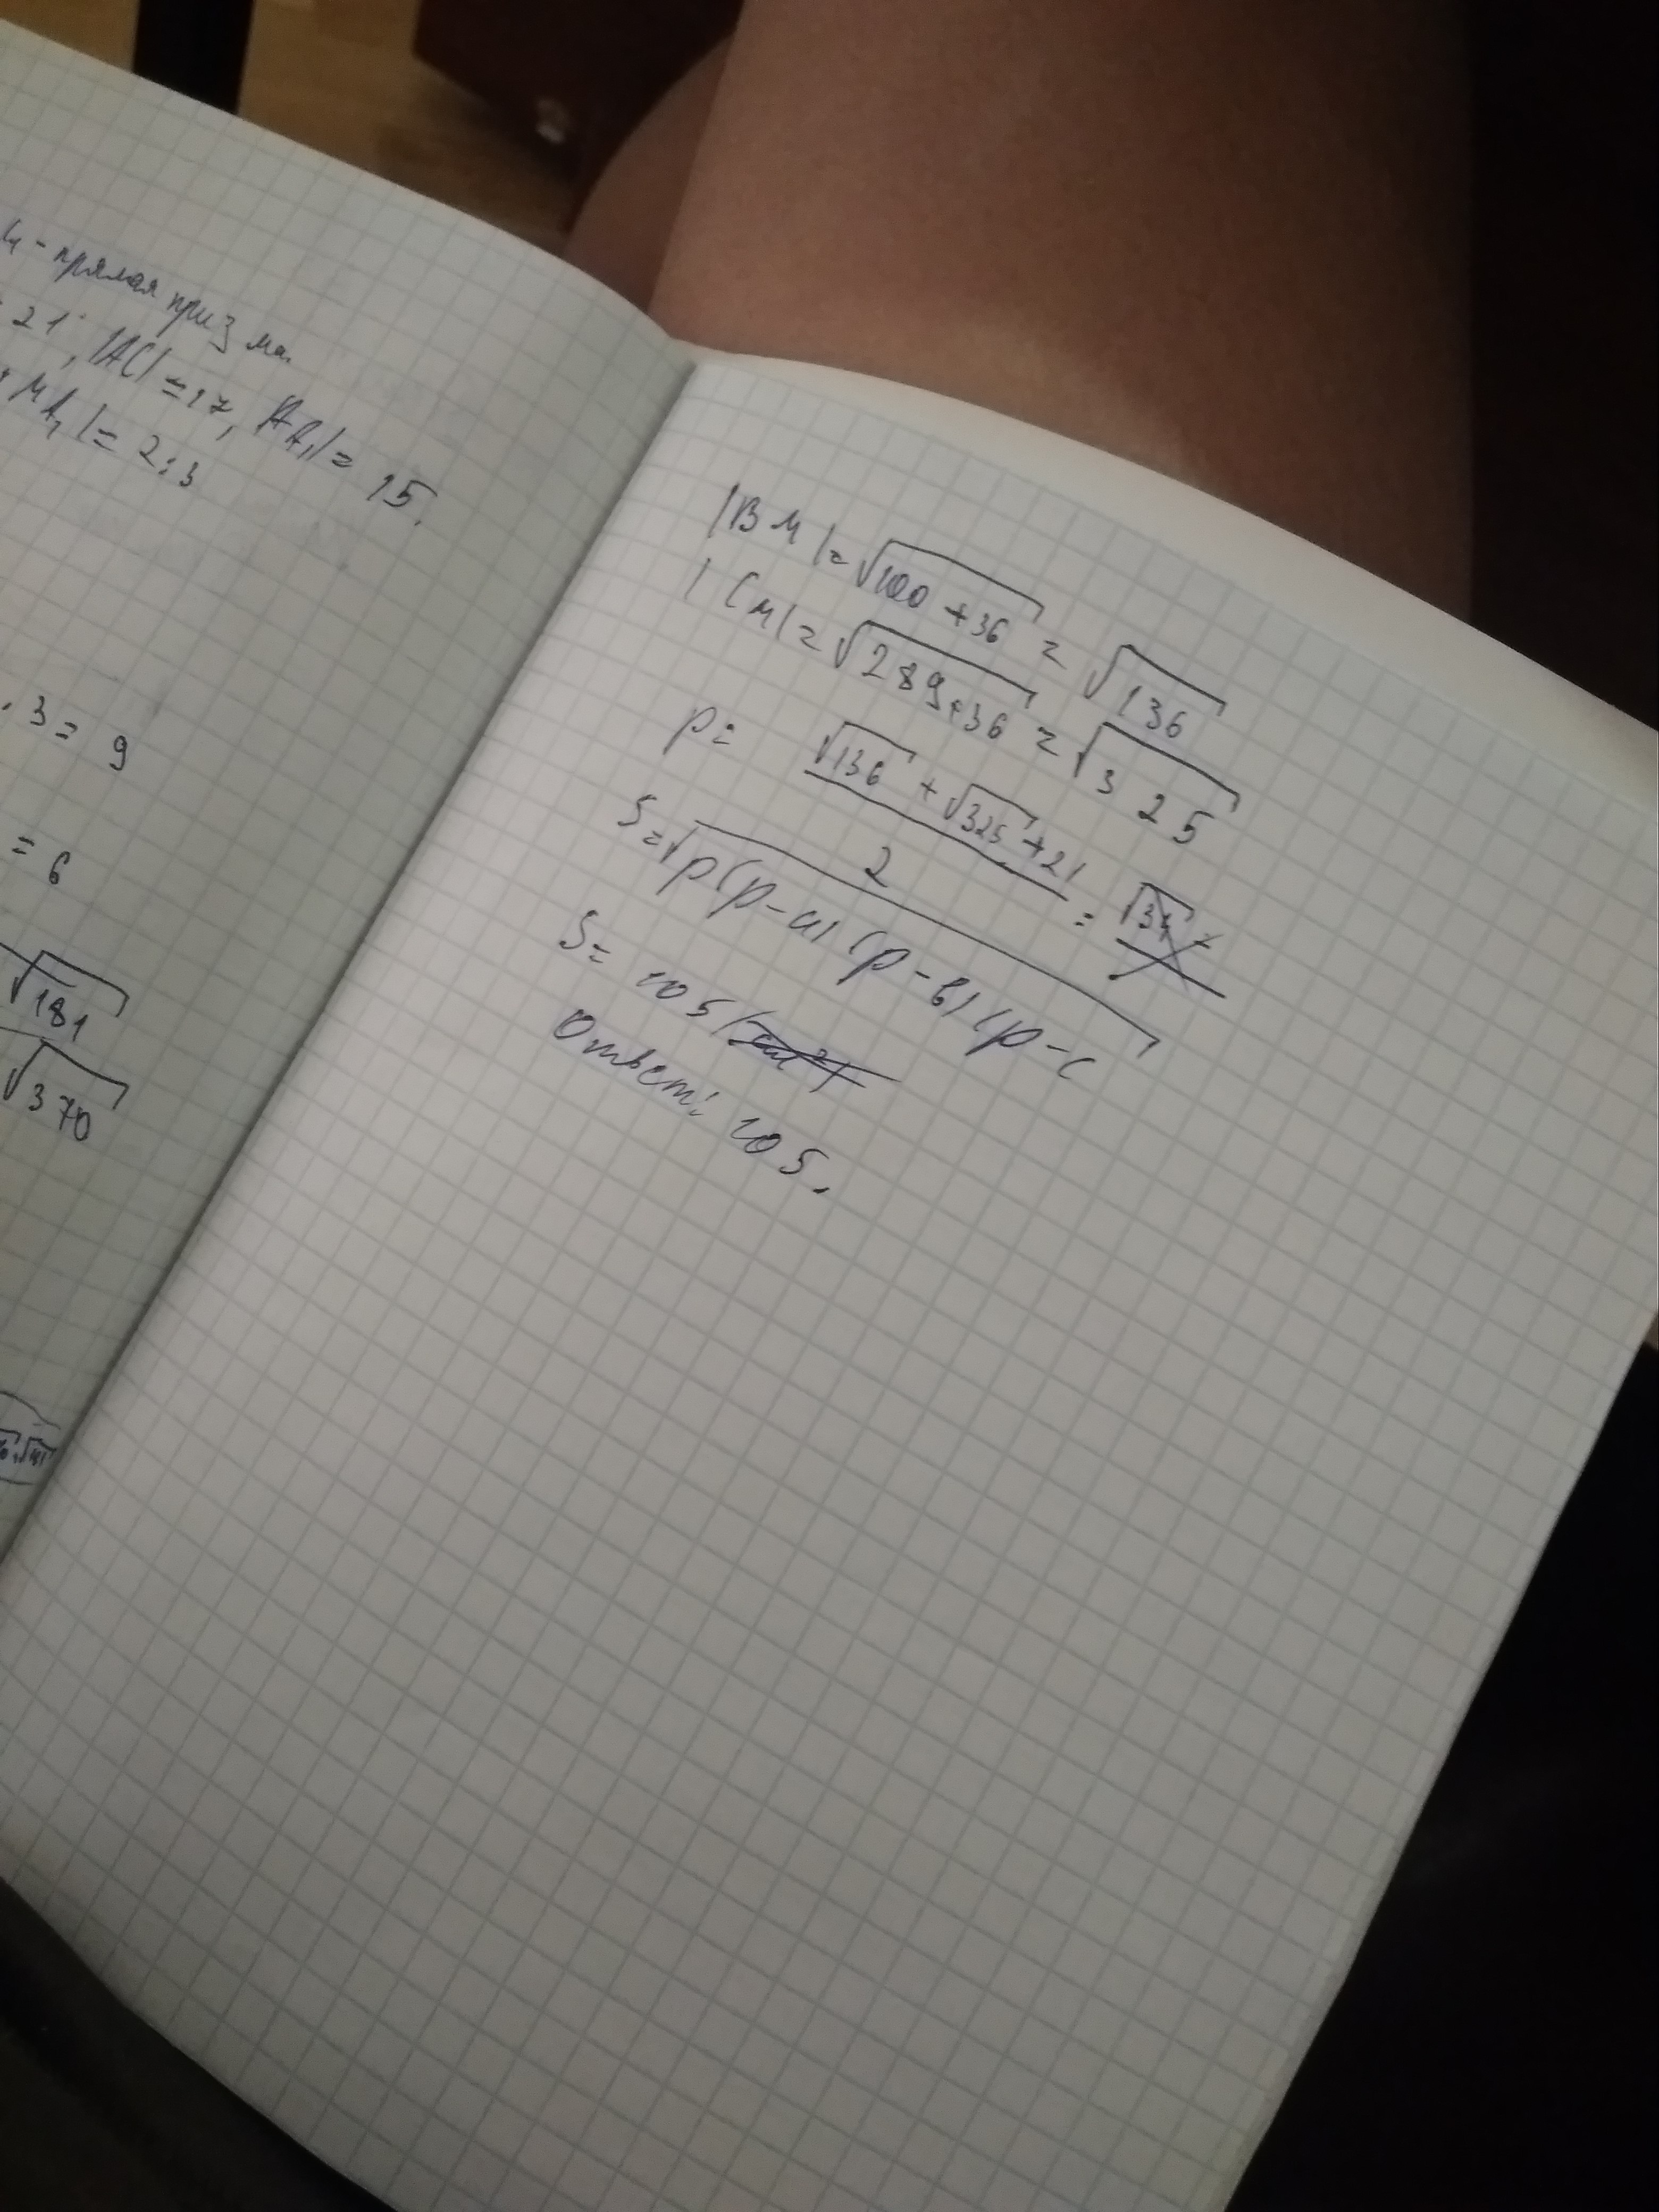 - прямая призма.
21, |AC| = 17, |AA₁| = 15.
MA₁| = 2:3
· 3 = 9
= 6
√181
√370
|BM| = √100 + 36 = √136
|CM| = √289+36 = √325
p = √136 + √325 + 21 / 2 =
S = √p(p-a)(p-b)(p-c
S = 105
Ответ: 105.